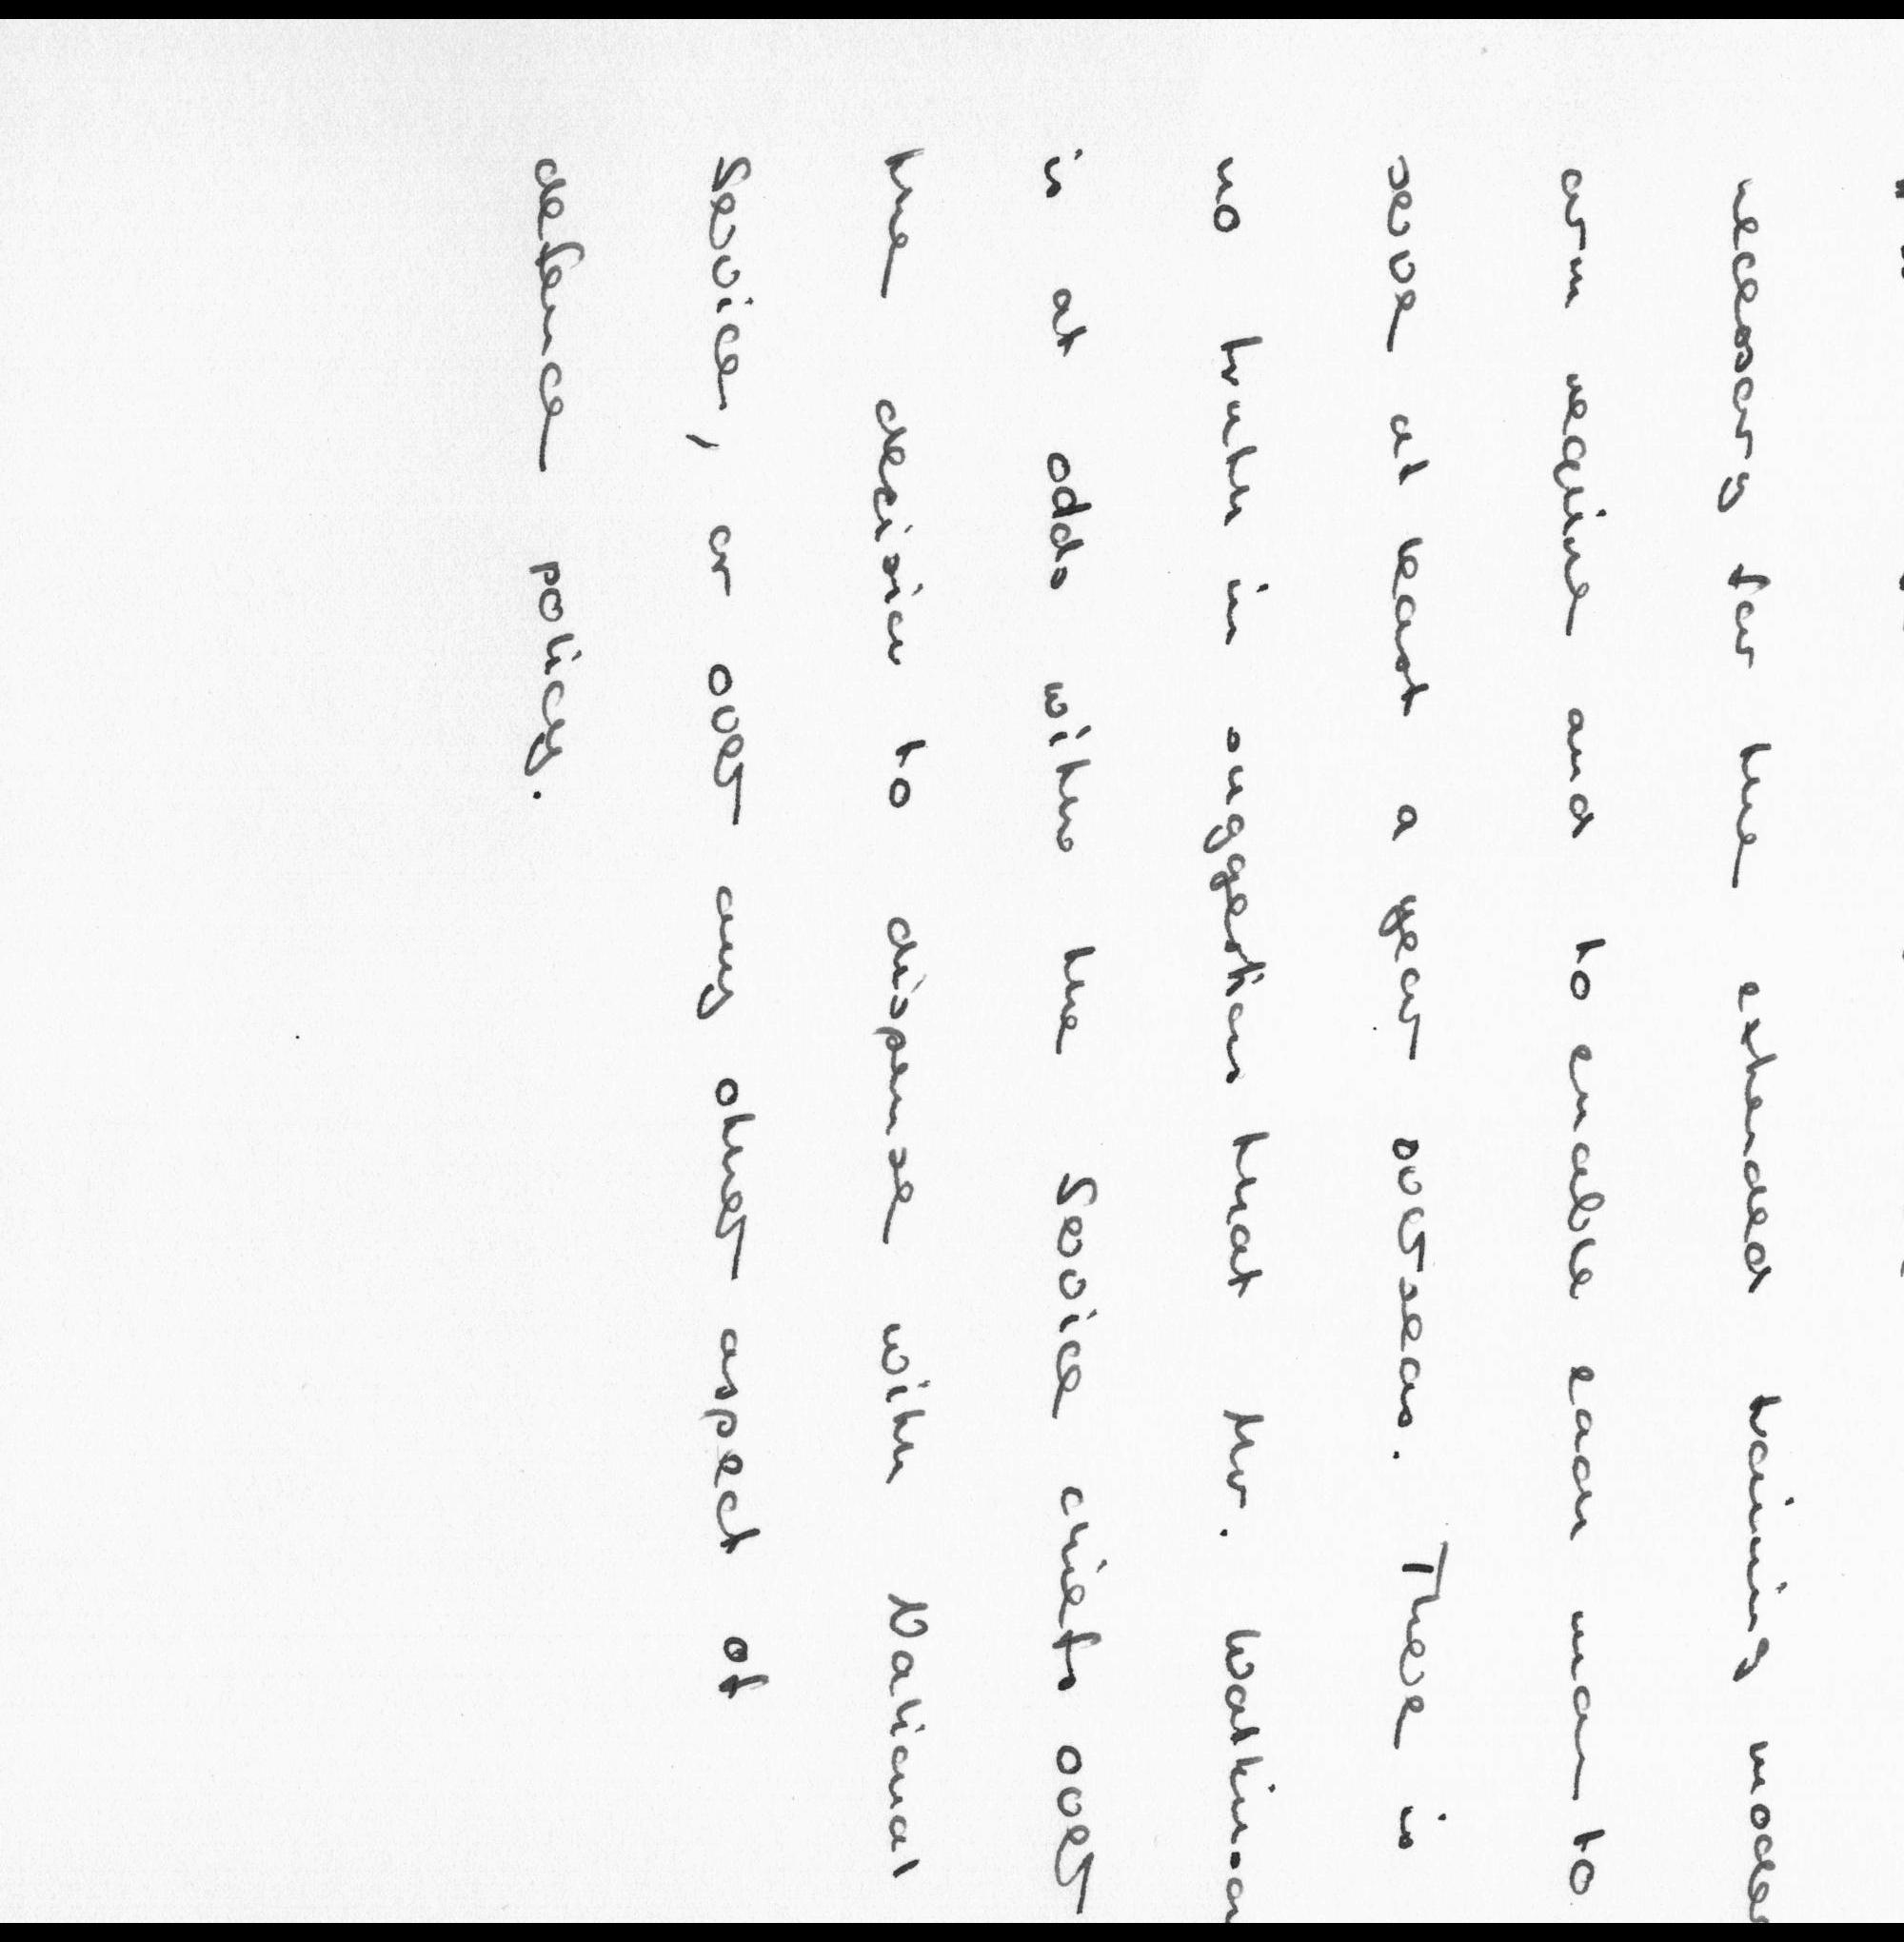 necessary for the extended training moder
arm require and to enable each man to
serve at least a year overseas. There is
no truth in suggestions that Mr. Watkinson
is at odds with the Service chiefs over
the decision to dispense with National
Service, or over any other aspect of
defence policy.